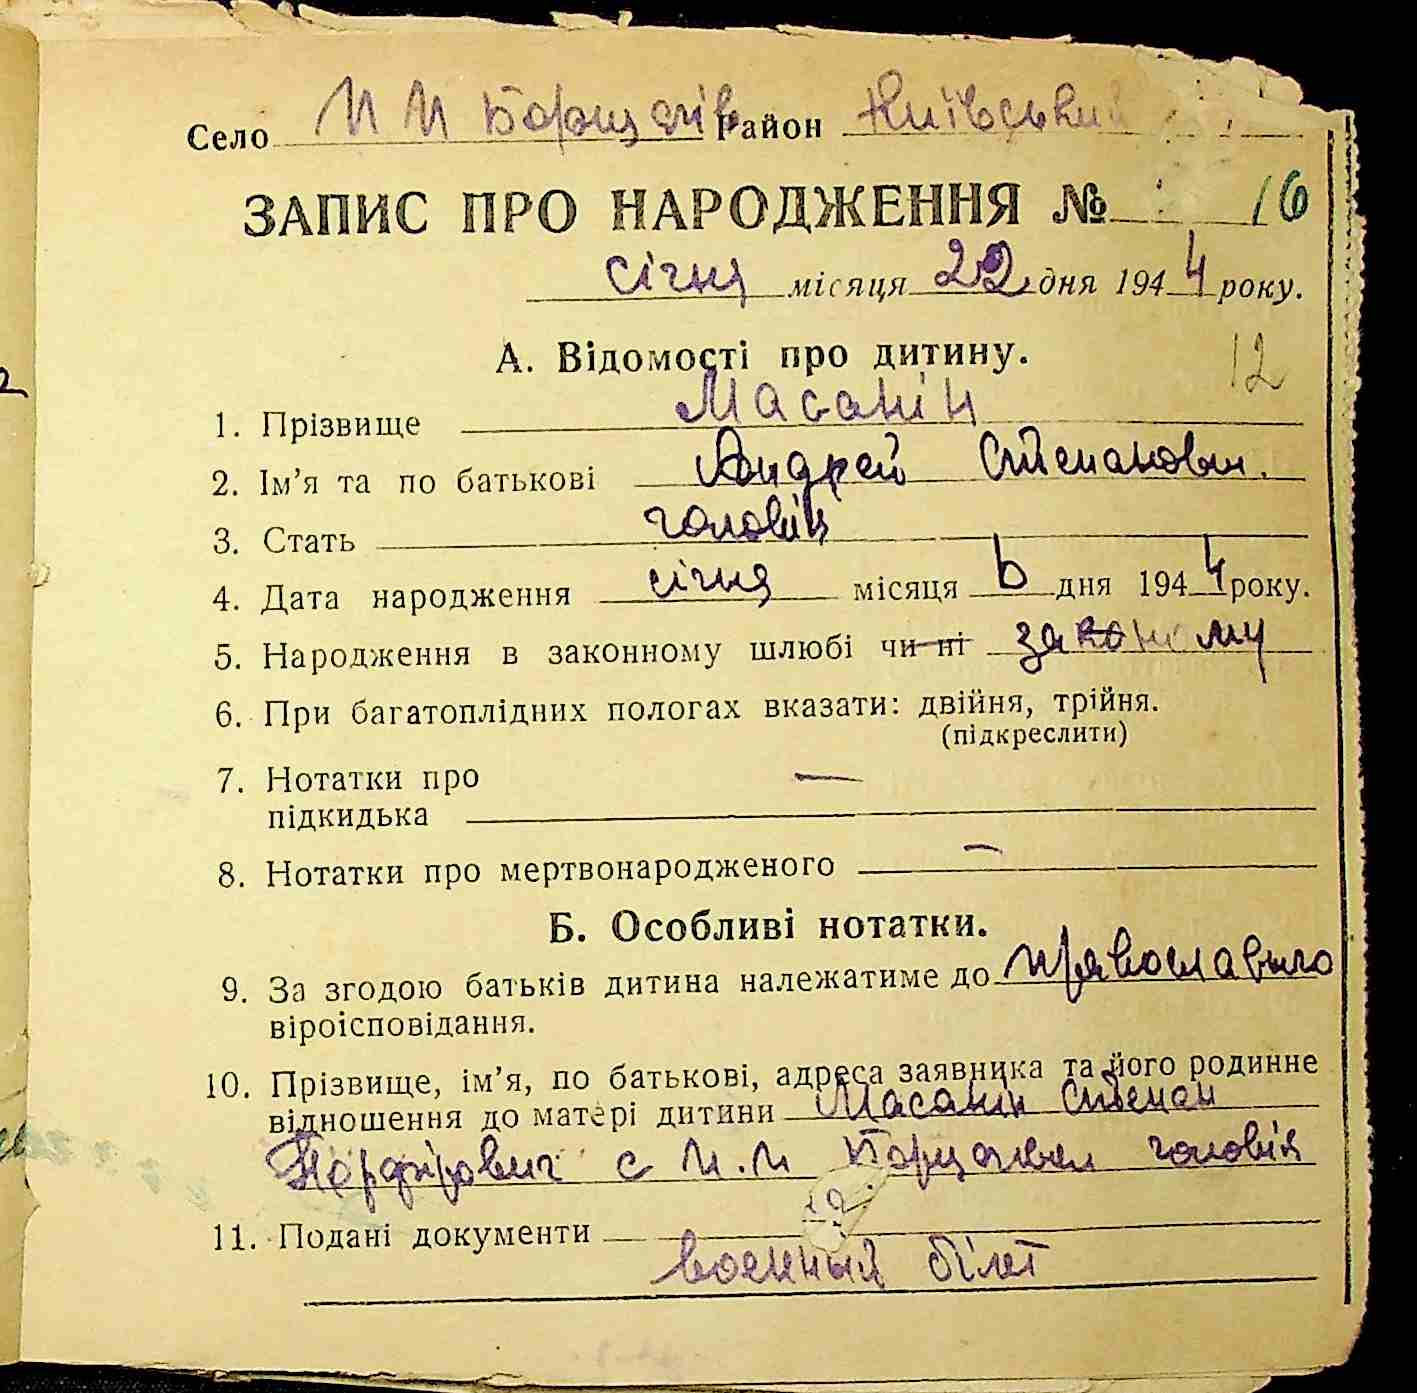 Село П П Борщагів Район Київський
ЗАПИС ПРО НАРОДЖЕННЯ № 16
січня місяця 22 дня 1944 року.
А. Відомості про дитину.
12
1. Прізвище Масанін
2. Ім'я та по батькові Андрей Степанович.
3. Стать чоловіч
4. Дата народження січня місяця 6 дня 1944 року.
5. Народження в законному шлюбі чи ні законому
6. При багатоплідних пологах вказати: двійня, трійня.
(підкреслити)
7. Нотатки про —
підкидька
8. Нотатки про мертвонародженого —
Б. Особливі нотатки.
9. За згодою батьків дитина належатиме до православного
віроісповідання.
10. Прізвище, ім'я, по батькові, адреса заявника та його родинне
відношення до матері дитини Масанін Степан
Порфірович с П.П чоловік
11. Подані документи
военный білет